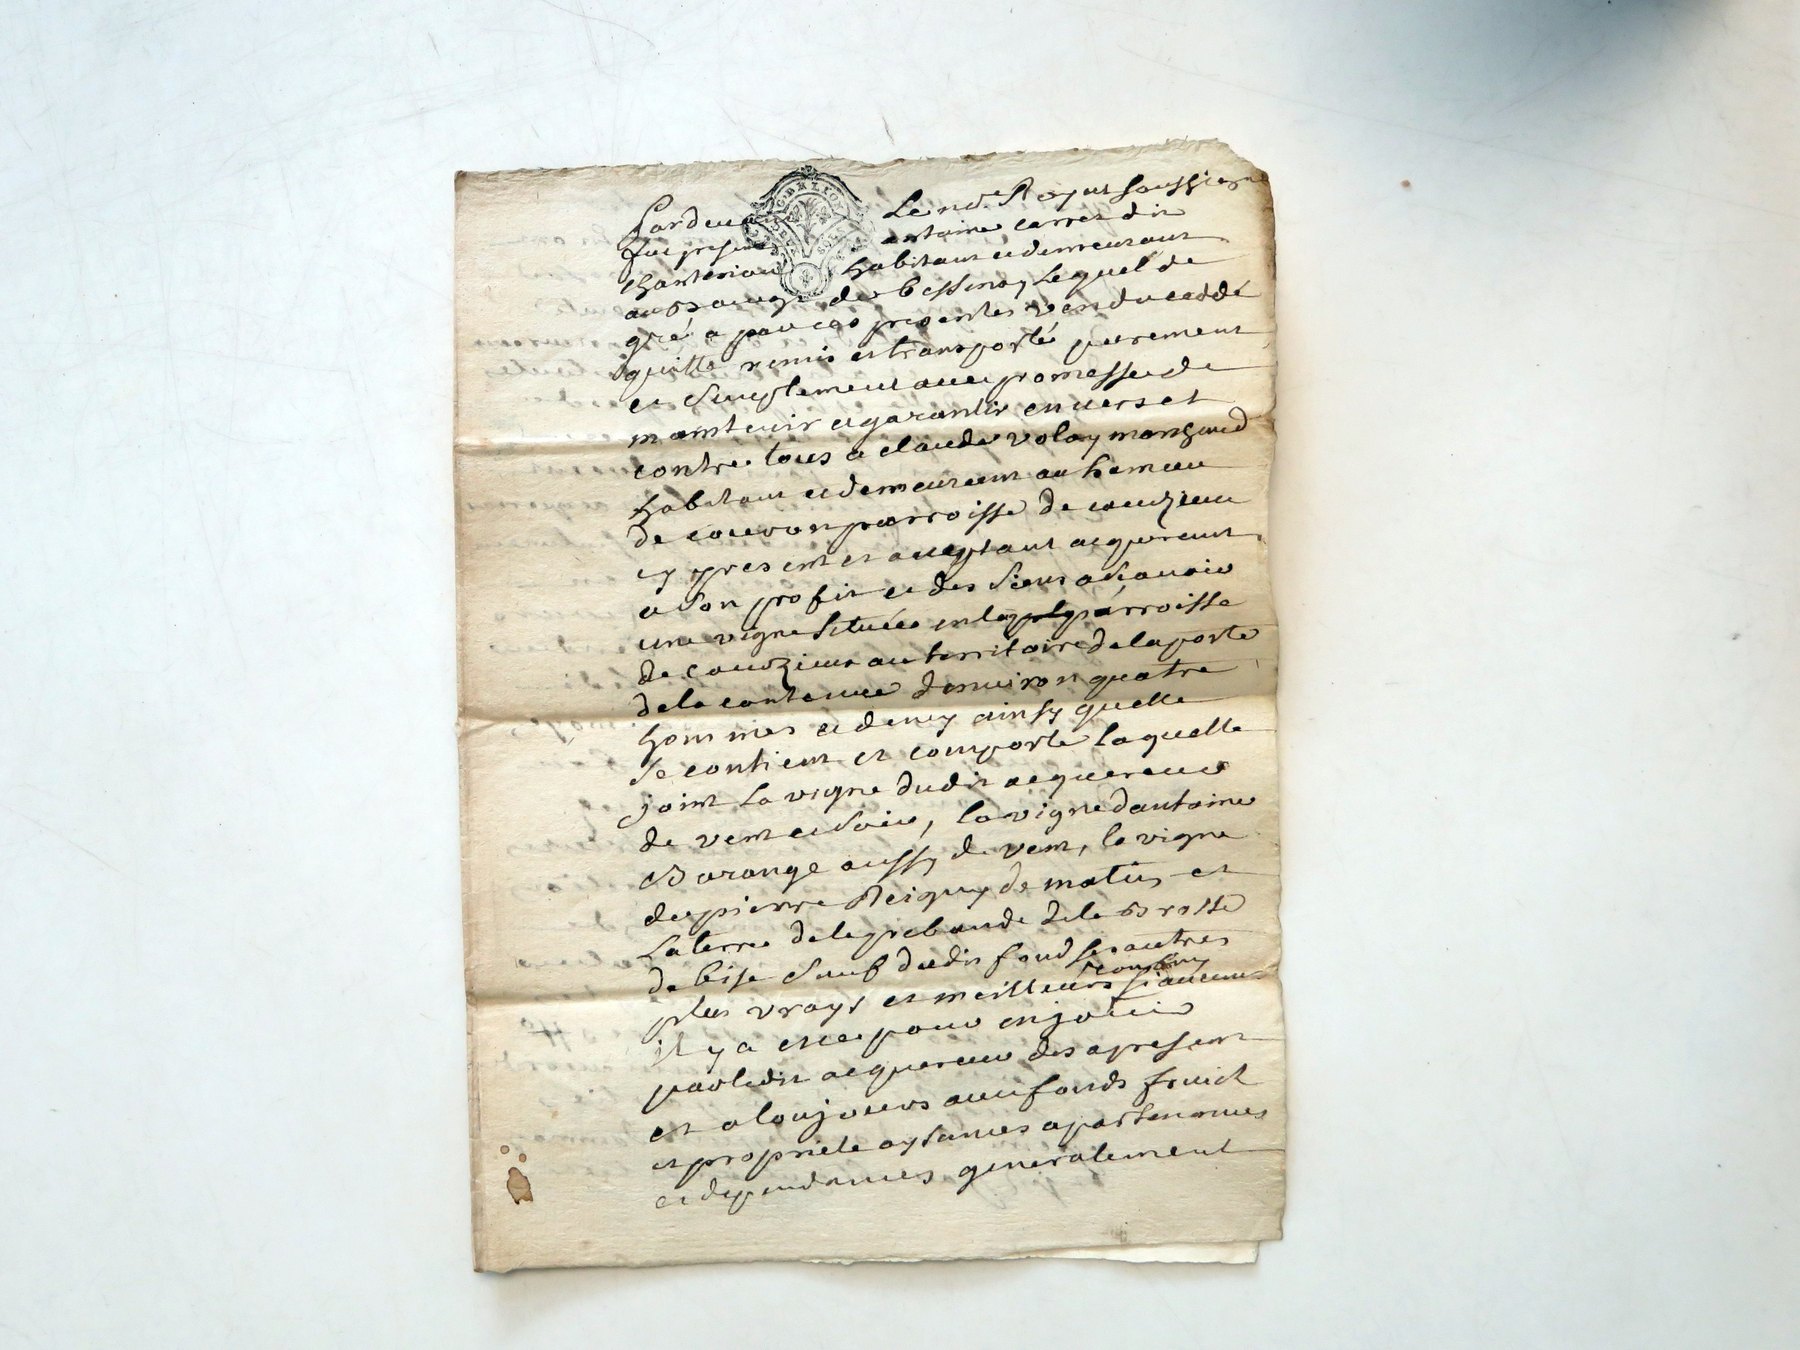 Pardevant Le no.re Royal soussigné
fut present antoine carret dit
chantarian habitant et demeurant
au de bessenay Lequel de
gré a par ces presentes vendu ceddé
quitté remis et transporté purement
et simplement avec promesse de
maintenir et garantir envers et
contre tous a claude volay marchand
habitant et demeurant au hameau
de parroisse de couzieu
cy present et acceptant acquereur
a son profit et des siens a scavoir
une vigne située en la parroisse
de couzieu au territoire de laporte
de la contenue denviron quatre
hommes et demy ainsy quelle
se contient et comporte laquelle
joint la vigne dudit acquereur
de vent et soir, la vigne dantoine
Barange aussy de vent, la vigne
de pierre de matin et
La terre de la prebande de la Brosse
de bise sauf dudit fond ses autres
confins
plus vrays et meilleurs si aucuns
il y a et ce pour en jouir
par ledit acquereur des apresent
et a toujours aux fonds fruict
et proprieté aysances apartenances
et dependances generalement